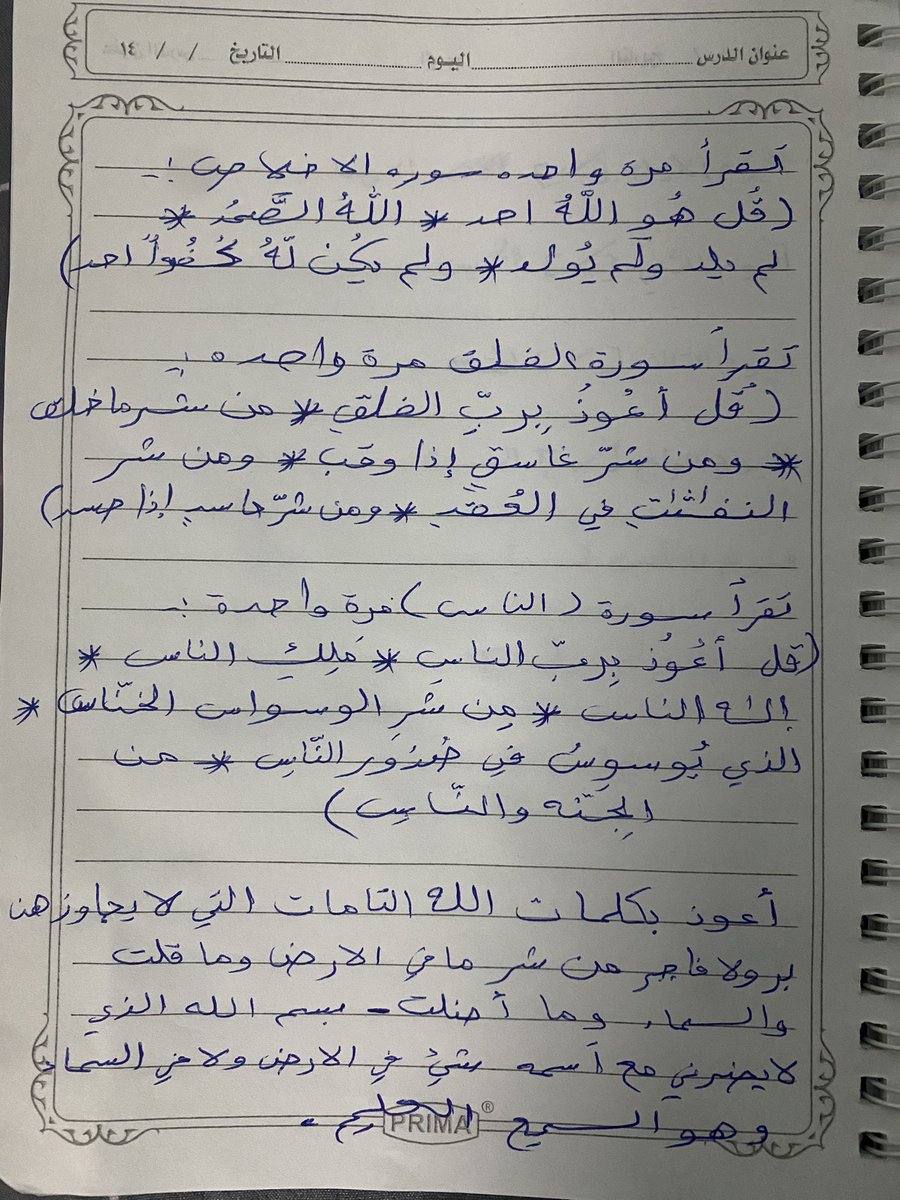 عنوان الدرس اليوم التاريخ / / ١٤
تقرأ مرة واحده سوره الاخلاص :-
(قُل هُو اللَّهُ احد * اللَّهُ الصَّمَدُ *
لم يلد ولَم يُولد * ولم يكُن لَّهُ كُفُواً احد)
تقرأ سورة الفلق مرة واحده :-
(قُل أعُوذُ بِربِّ الفلقِ * من شر ما خلق
* ومن شرّ غاسقٍ إذا وقب * ومن شر
النفثت في العُقد * ومن شرّ حاسد إذا حسد)
تقرأ سورة (الناس) مرة واحدة :-
(قل أعُوذُ بِربّ الناسِ * مَلِكِ الناس *
إله الناس * مِن شرِ الوسواس الخنّاس *
الذي يُوسوِسُ في صُدُورِ النَّاسِ * من
الجِنّه والنّاسِ)
أعوذ بكلمات الله التامات التي لا يجاوزهن
بر ولا فاجر من شر ما في الارض وما قلت
والسماء وما أضلت - بسم الله الذي
لا يضرني مع اسمه شيءُ في الارض ولا في السماء
وهو السميع العليم .
PRIMA ®